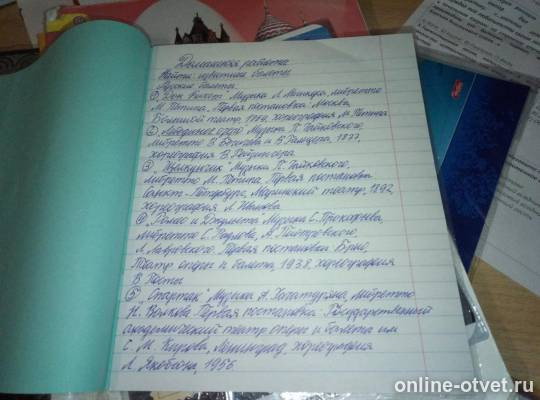 Домашняя работа
Найти известные балеты
Русские балеты
① "Дон Кихот" Музыка Л. Минкуса, либретто
М. Петипа. Первая постановка: Москва,
Большой театр, хореография М. Петипа
② "Лебединое озеро" Музыка П. Чайковского,
либретто В. Бегичева и В. Гельцера, 1877,
хореография В. Рейзингера
③ "Щелкунчик" Музыка П. Чайковского,
либретто М. Петипа. Первая постановка
Санкт-Петербург, Мариинский театр, 1892
хореография Л. Иванова
④ "Ромео и Джульетта" Музыка С. Прокофьева,
либретто С. Радлова, А. Пиотровского,
Л. Лавровского. Первая постановка Брно,
Театр оперы и балета, 1938, хореография
В. Псоты
⑤ "Спартак" Музыка А. Хачатуряна, либретто
Н. Волкова Первая постановка Государственный
академический театр оперы и балета им
С. М. Кирова, Ленинград, хореография
Л. Якобсона, 1956.
online-otvet.ru